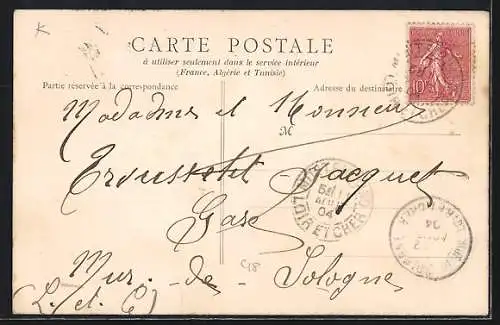 K
CARTE POSTALE
à utiliser seulement dans le service intérieur
(France, Algérie et Tunisie)
Partie réservée à la correspondance
Adresse du destinataire
M
Madame et Monsieur
Trousselet-Jacquet
Gare
Mur-de-Sologne
(L. et C)
10
LOIR ET CHER
04
LOIR-ET-CHER
04
C18